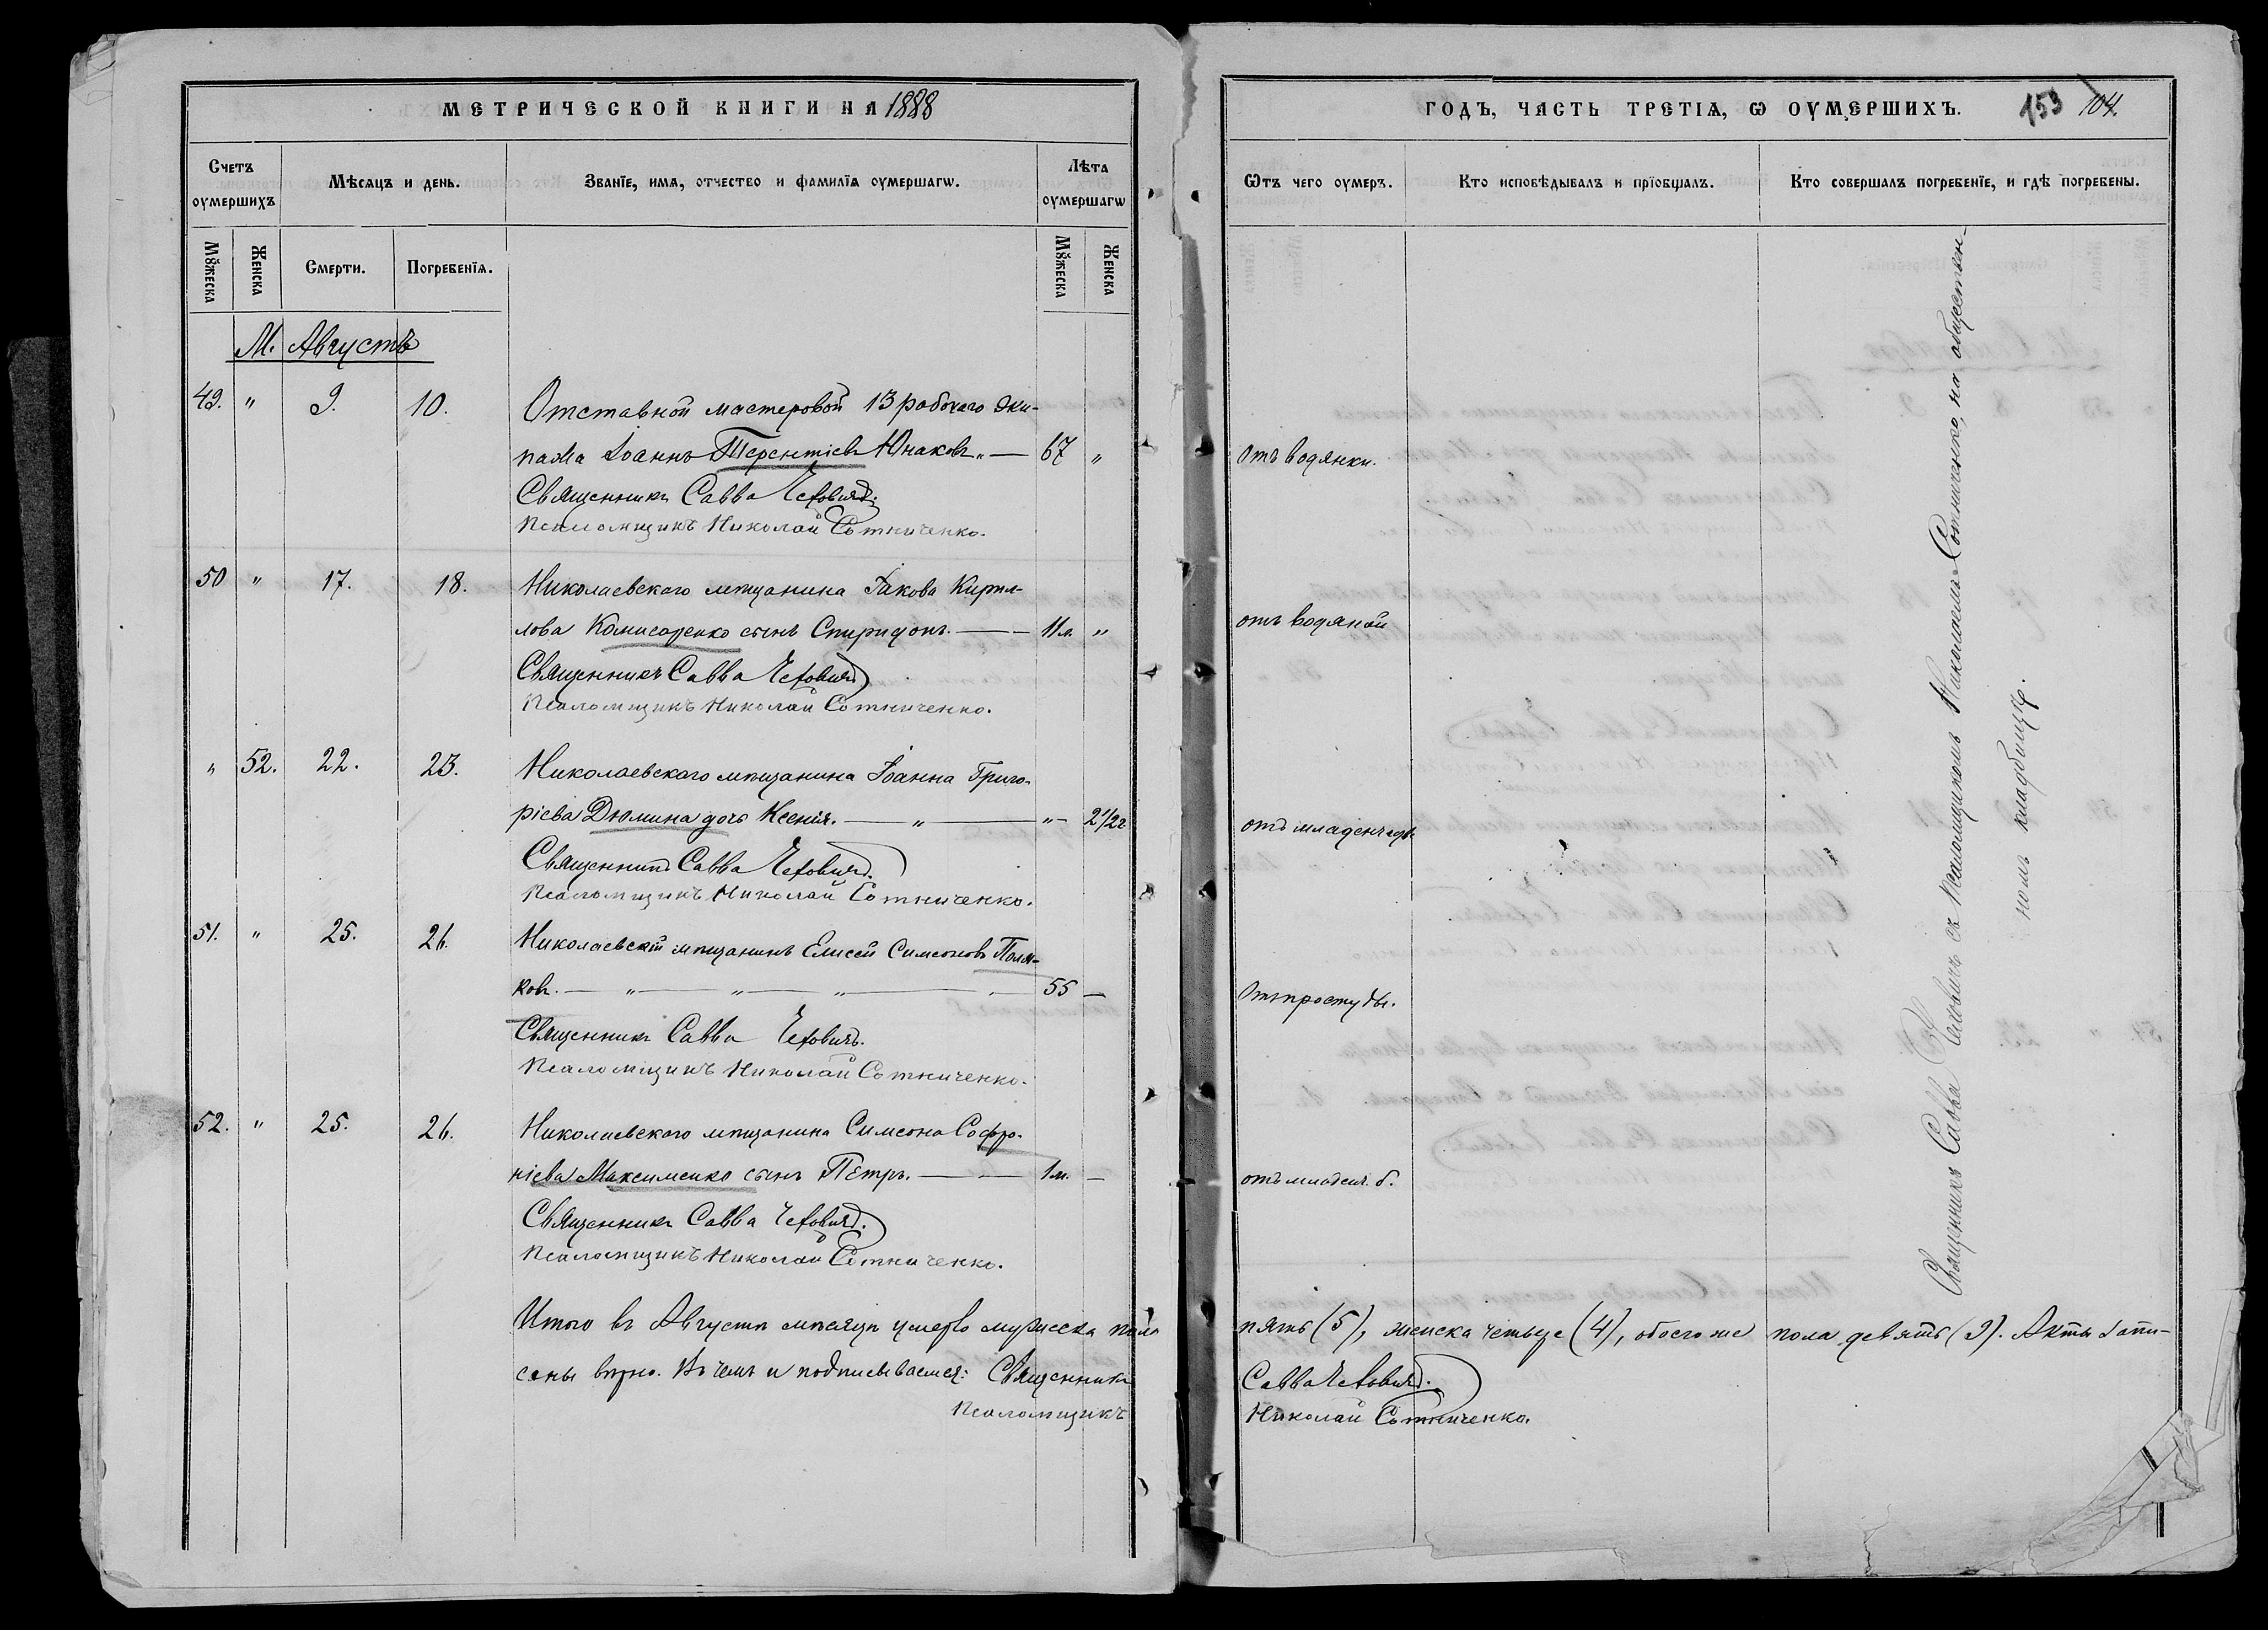 МЕТРИЧЕСКОЙ КНИГИ НА 1888
Счетъ оумершихъ
Мѣсяцъ и день.
Званїе, имя, отчество и фамилїя оумершагѡ.
Лѣта оумершагѡ
Мꙋжеска
Женска
Смерти.
Погребенїя.
Мꙋжеска
Женска
М. Августъ
49. " 9. 10. Отставной мастеровой 13 рабочаго эки-
пажа Іоаннъ Терентіевъ Юнаковъ. — 67 "
Священникъ Савва Чехович.
Псаломщикъ Николай Сотниченко.
50 " 17. 18. Николаевского мѣщанина Іакова Кирил-
лова Комисаренко сынъ Спиридонъ. — 11 м. "
Священникъ Савва Чехович
Псаломщикъ Николай Сотниченко.
" 52. 22. 23. Николаевского мѣщанина Іоанна Григо-
ріева Дюмина дочь Ксенія. — " — "- 2½ г
Священникъ Савва Чехович.
Псаломщикъ Николай Сотниченко.
51. " 25. 26. Николаевскій мѣщанинъ Елисей Симеоновъ Поля-
ковъ. — " — " — " — 55 —
Священникъ Савва Чеховичъ.
Псаломщикъ Николай Сотниченко.
52. " 25. 26. Николаевского мѣщанина Симеона Софро-
ніева Максименко сынъ Петръ. — 1 м. —
Священникъ Савва Чехович.
Псаломщикъ Николай Сотниченко.
Итого въ Августѣ мѣсяцѣ умерло мужеска пола
саны вѣрно. Въ чемъ и подписываемся: Священникъ
Псаломщикъ
ГОДЪ, ЧАСТЬ ТРЕТІЯ, Ѡ ОУМЕРШИХЪ.
153 104.
Ѿтъ чего оумеръ.
Кто исповѣдывалъ и прїобщалъ.
Кто совершалъ погребенїе, и гдѣ погребены.
Отъ водянки.
отъ водяной
отъ младенческ.
Отъ простуды.
отъ младен. б.
Священникъ Савва Чеховичъ съ псаломщикомъ Николаемъ Сотниченко, на обществен-
номъ кладбищѣ.
пять (5), женска четыре (4), обоего же пола девять (9). Акты запи-
Савва Чехович.
Николай Сотниченко.